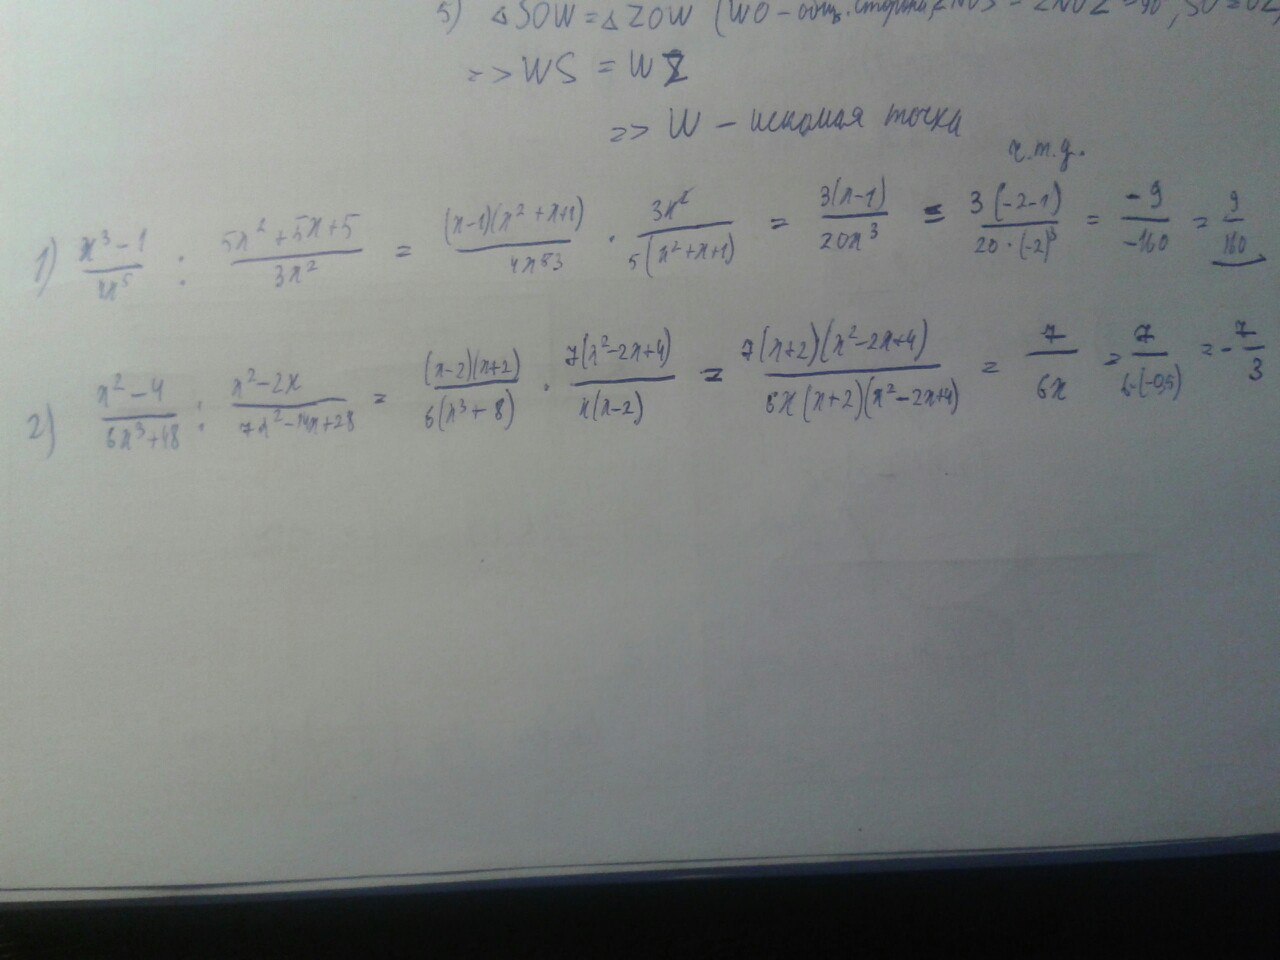 5) △SOW = △ZOW (WO - общ. сторона,
=> WS = WZ
=> W - искомая точка
ч.т.д.
1) (x³-1)/(4x⁵) : (5x²+5x+5)/(3x²) = ((x-1)(x²+x+1))/(4x⁵3) · (3x²)/(5(x²+x+1)) = (3(x-1))/(20x³) = (3(-2-1))/(20·(-2)³) = (-9)/(-160) = 9/160
2) (x²-4)/(6x³+48) : (x²-2x)/(7x²-14x+28) = ((x-2)(x+2))/(6(x³+8)) · (7(x²-2x+4))/(x(x-2)) = (7(x+2)(x²-2x+4))/(6x(x+2)(x²-2x+4)) = 7/(6x) = 7/(6·(-0,5)) = -7/3